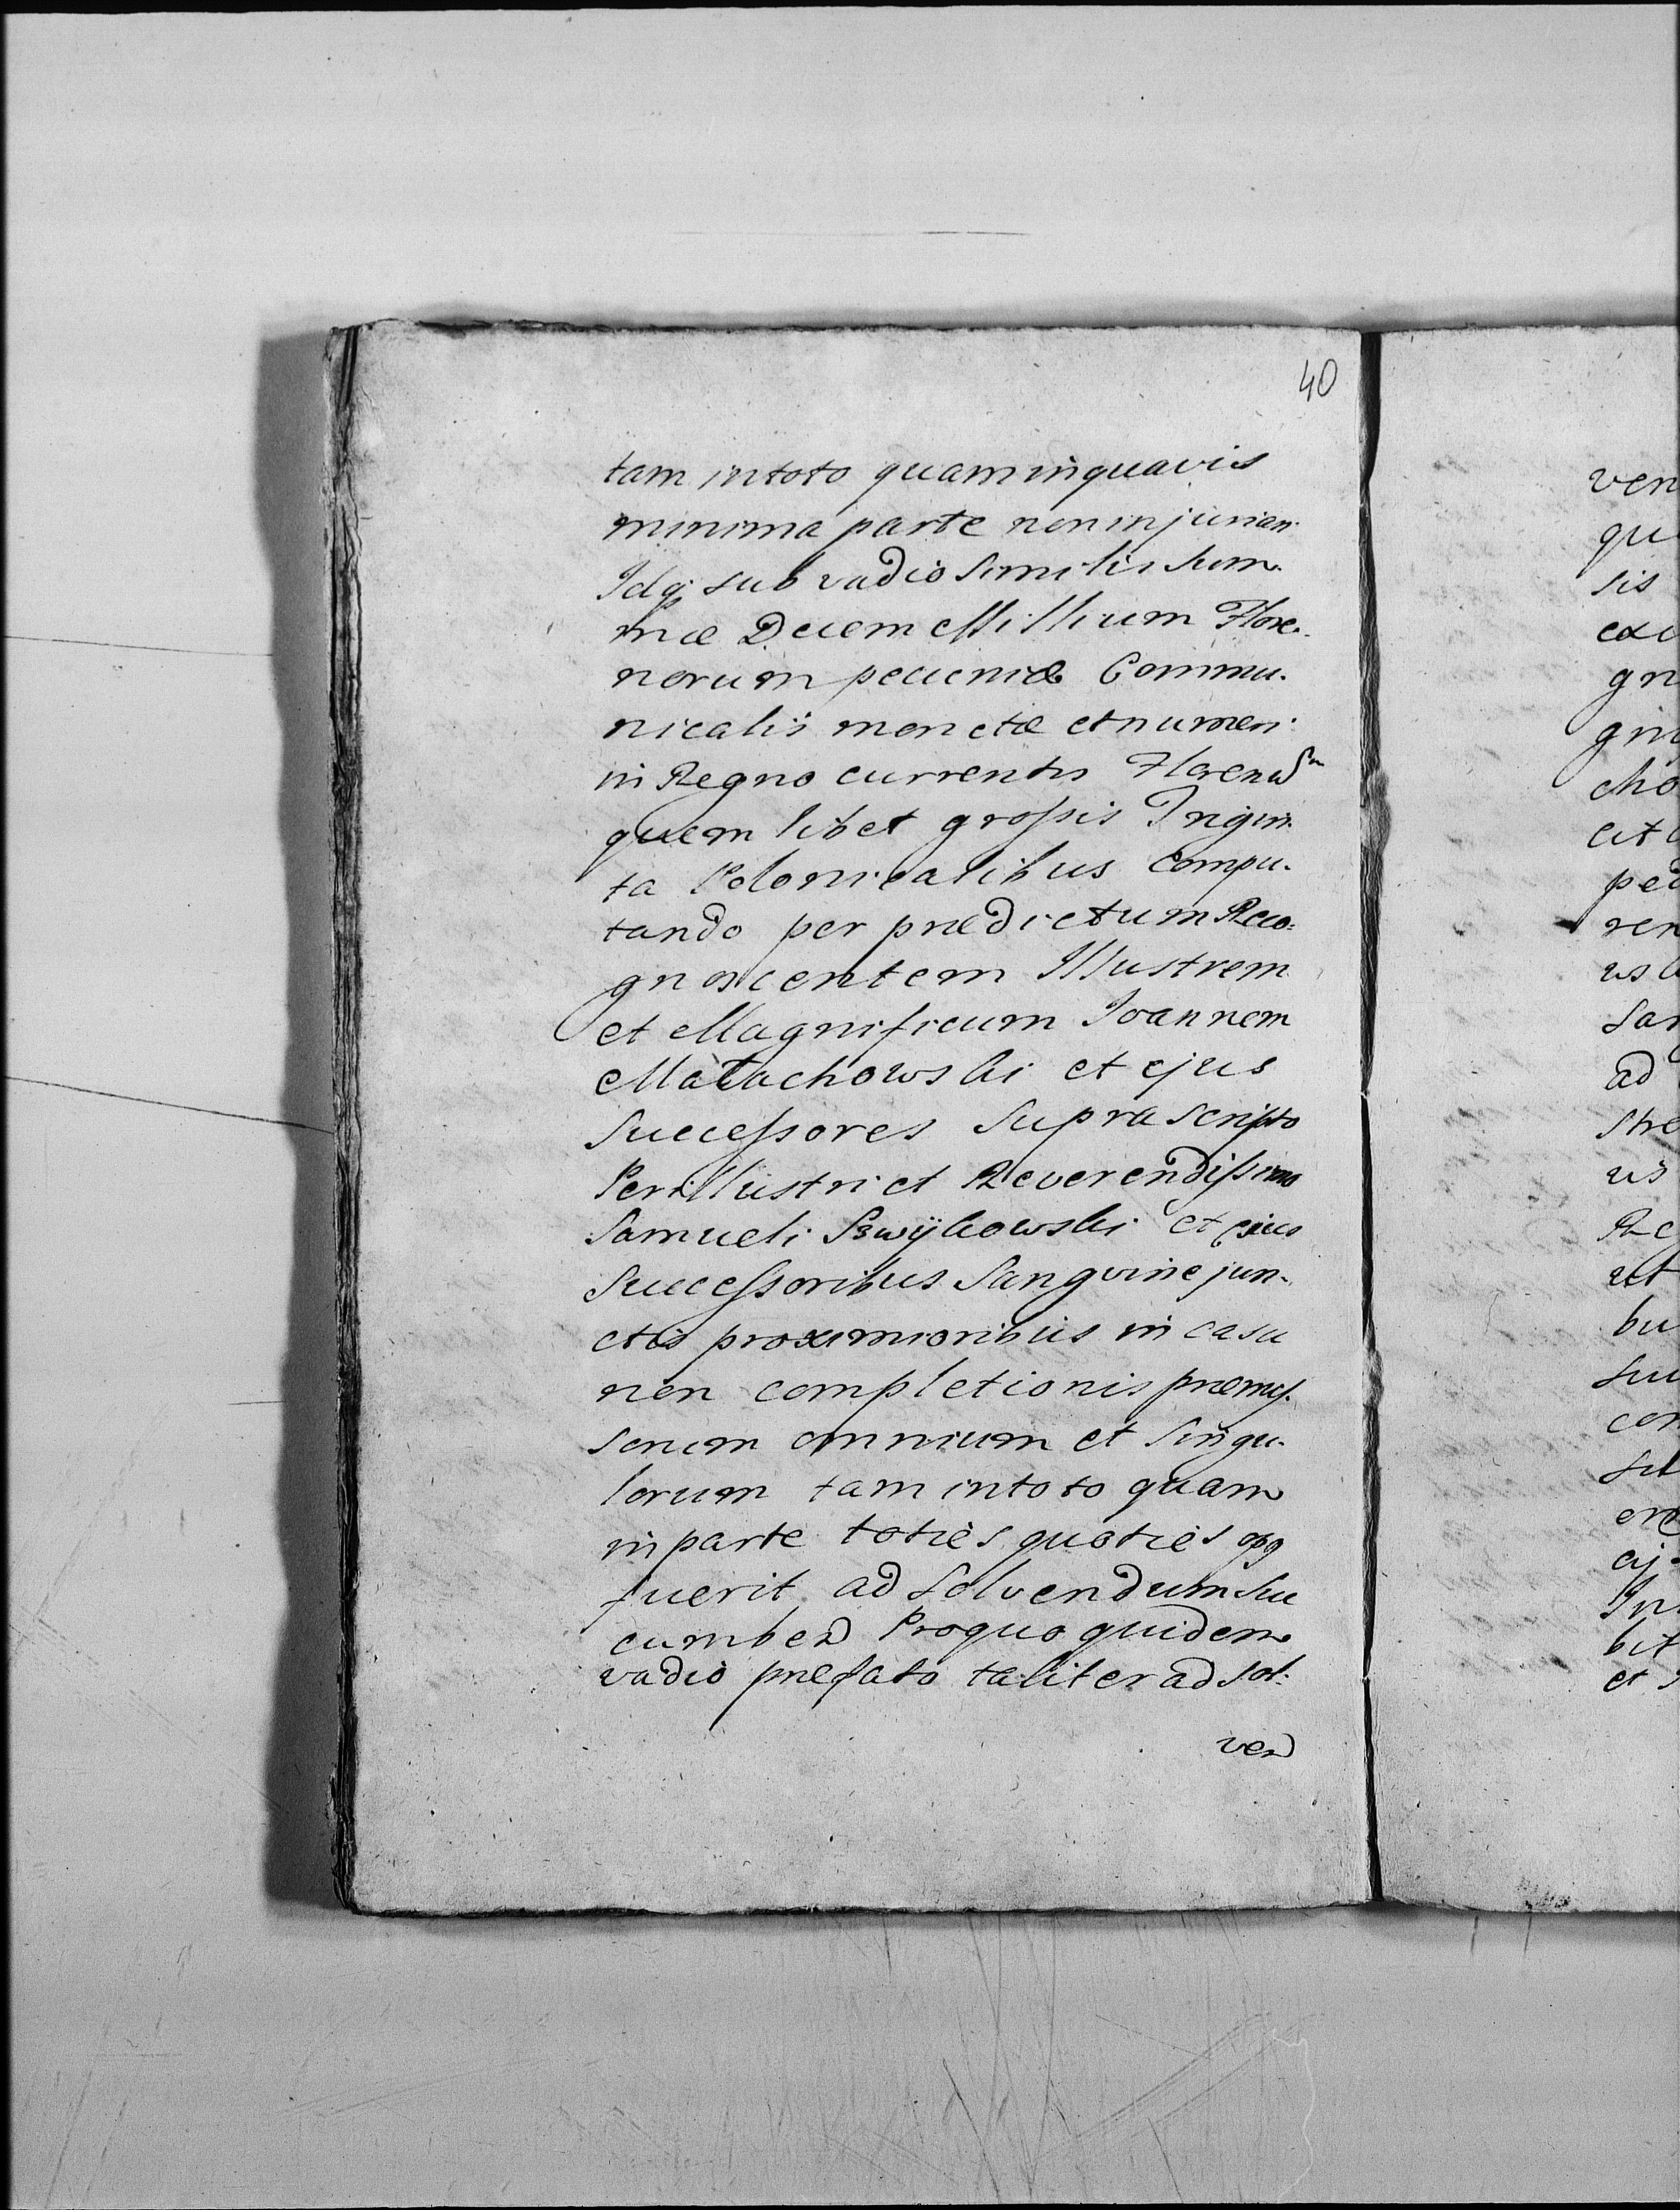 40
tam intoto quam inquavis
minima parte non injurian.
Idq; sub vadio Similis Sum.
mæ Decem Millium Flore.
norum pecuniæ Commu.
nicalis monetæ et numeri
in Regno currentis Floren
quem libet grossis Trigin.
ta Polonicalibus Compu.
tando per prædictum Reco:
gnoscentem Illustrem
et Magnificum Joannem
Małachowski et ejus
Successores Supra Scripto
Perillustri et Reverendissimo
Samueli Bwÿkowski et ejus
Successoribus Sanguine jun-
ctis proximioribus in casu
non completionis præmis.
sorum omnium et Singu.
lorum tam intoto quam
in parte toties quoties opq
fuerit ad Solvendum Suc
cumben Proquo quidem
vadio præfato taliter ad Sol:
ven
ven
qu
sis
gn
ren
ad
Stre
us
ut
bu
bit
et